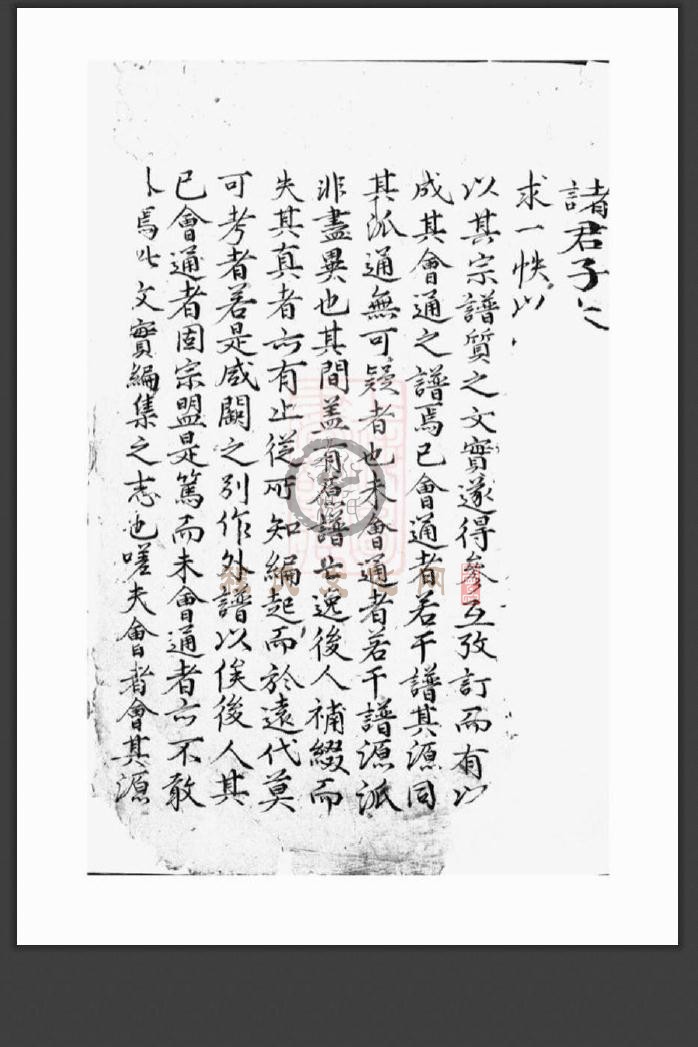 諸君子
求一帙以
以其宗譜質之文實遂得叅互攷訂而有以
成其會通之譜焉已會通者若干譜其源同
其派通無可疑者也未會通者若干譜源派
非盡異也其間盖有原譜亡逸後人補綴而
失其真者亦有止從所知編起而於遠代莫
可考者若是咸闕之别作外譜以俟後人其
已會通者固宗盟是篤而未會通者亦不敢
焉此文實編集之志也嗟夫會者會其源